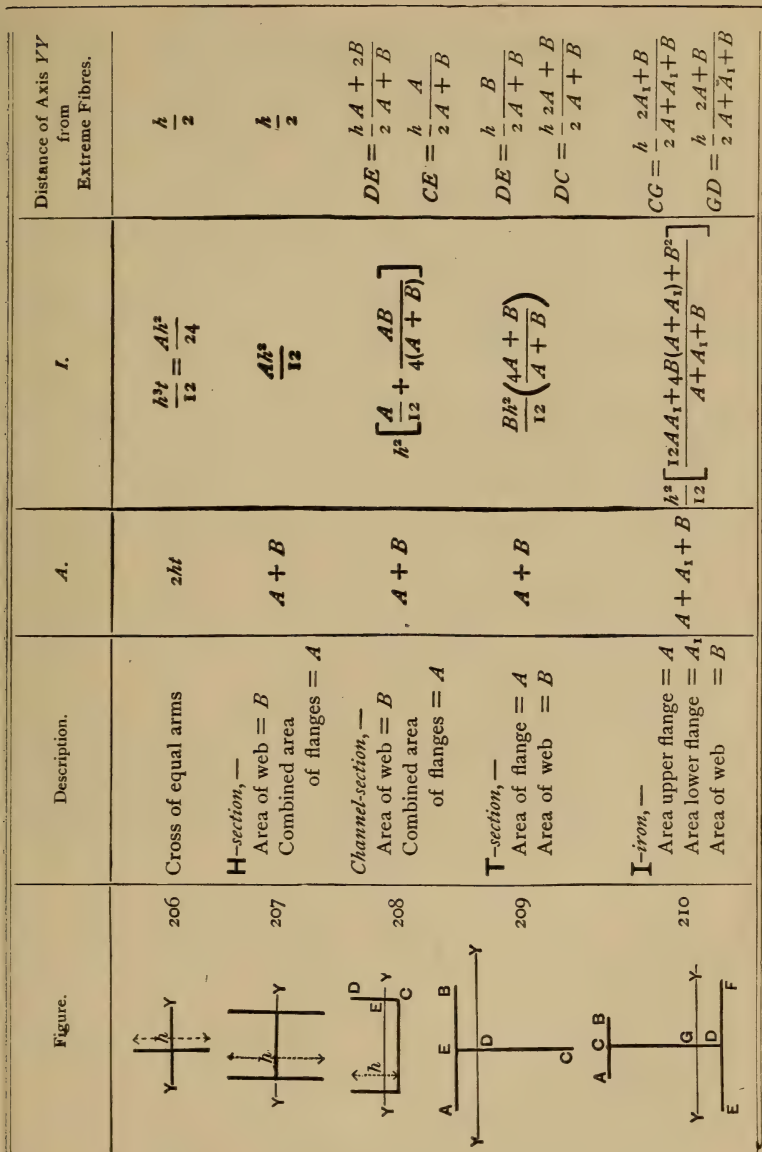 Figure. Description. A. I. Distance of Axis YY from Extreme Fibres.
Y h Y
206 Cross of equal arms 2ht h³t/12 = Ah²/24 h/2
Y h Y
207 H-section,—
Area of web = B
Combined area
of flanges = A
A + B Ah²/12 h/2
Y h E Y D C
208 Channel-section,—
Area of web = B
Combined area
of flanges = A
A + B h²[A/12 + AB/4(A + B)]
DE = h/2 A + 2B/A + B
CE = h/2 A/A + B
A E B Y D Y C
209 T-section,—
Area of flange = A
Area of web = B
A + B Bh²/12 (4A + B/A + B)
DE = h/2 B/A + B
DC = h/2 2A + B/A + B
A C B Y G Y D E F
210 I-iron,—
Area upper flange = A
Area lower flange = A₁
Area of web = B
A + A₁ + B h²/12 [12AA₁+4B(A+A₁)+B²/A+A₁+B]
CG = h/2 2A₁+B/A+A₁+B
GD = h/2 2A+B/A+A₁+B